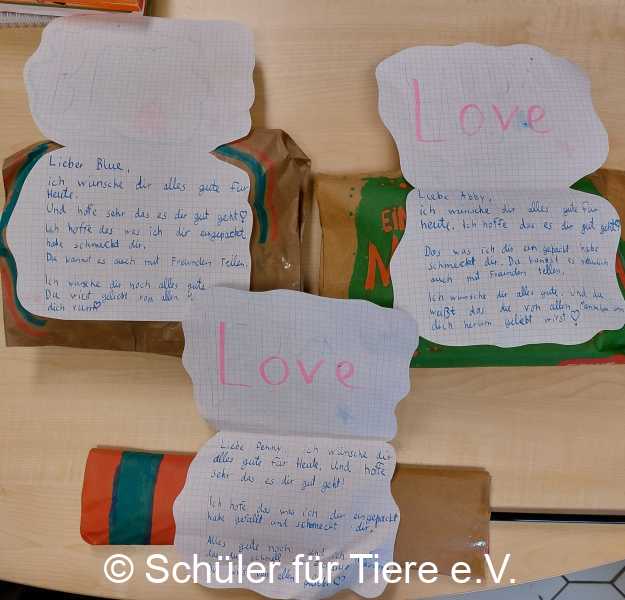 Lieber Blue,
ich wünsche dir alles gute für
Heute.
Und hoffe sehr das es dir gut geht♡
Ich hoffe das was ich dir eingepackt
habe schmeckt dir.
Du kannst es auch mit Freunden Teilen.
Ich wünsche dir noch alles gute
Du wirst geliebt von allen
dich rum♡
Love
EIN
M
Liebe Abby,
ich wünsche dir alles gute für
heute. Ich hoffe das es dir gut geht♡
Das was ich dir ein gepackt habe
schmeckt dir. Du kannst es
auch mit Freunden teilen.
Ich wünsche dir alles gute. Und du
weißt das du von allen um
dich herum geliebt wirst♡
Love
Liebe Penny ich wünsche dir
alles gute für Heute, Und hoffe
sehr das es dir gut geht!
Ich hoffe das was ich dir eingepackt
habe gefällt und schmeckt dir.
Alles gute noch
das du schnell
von allen
© Schüler für Tiere e.V.